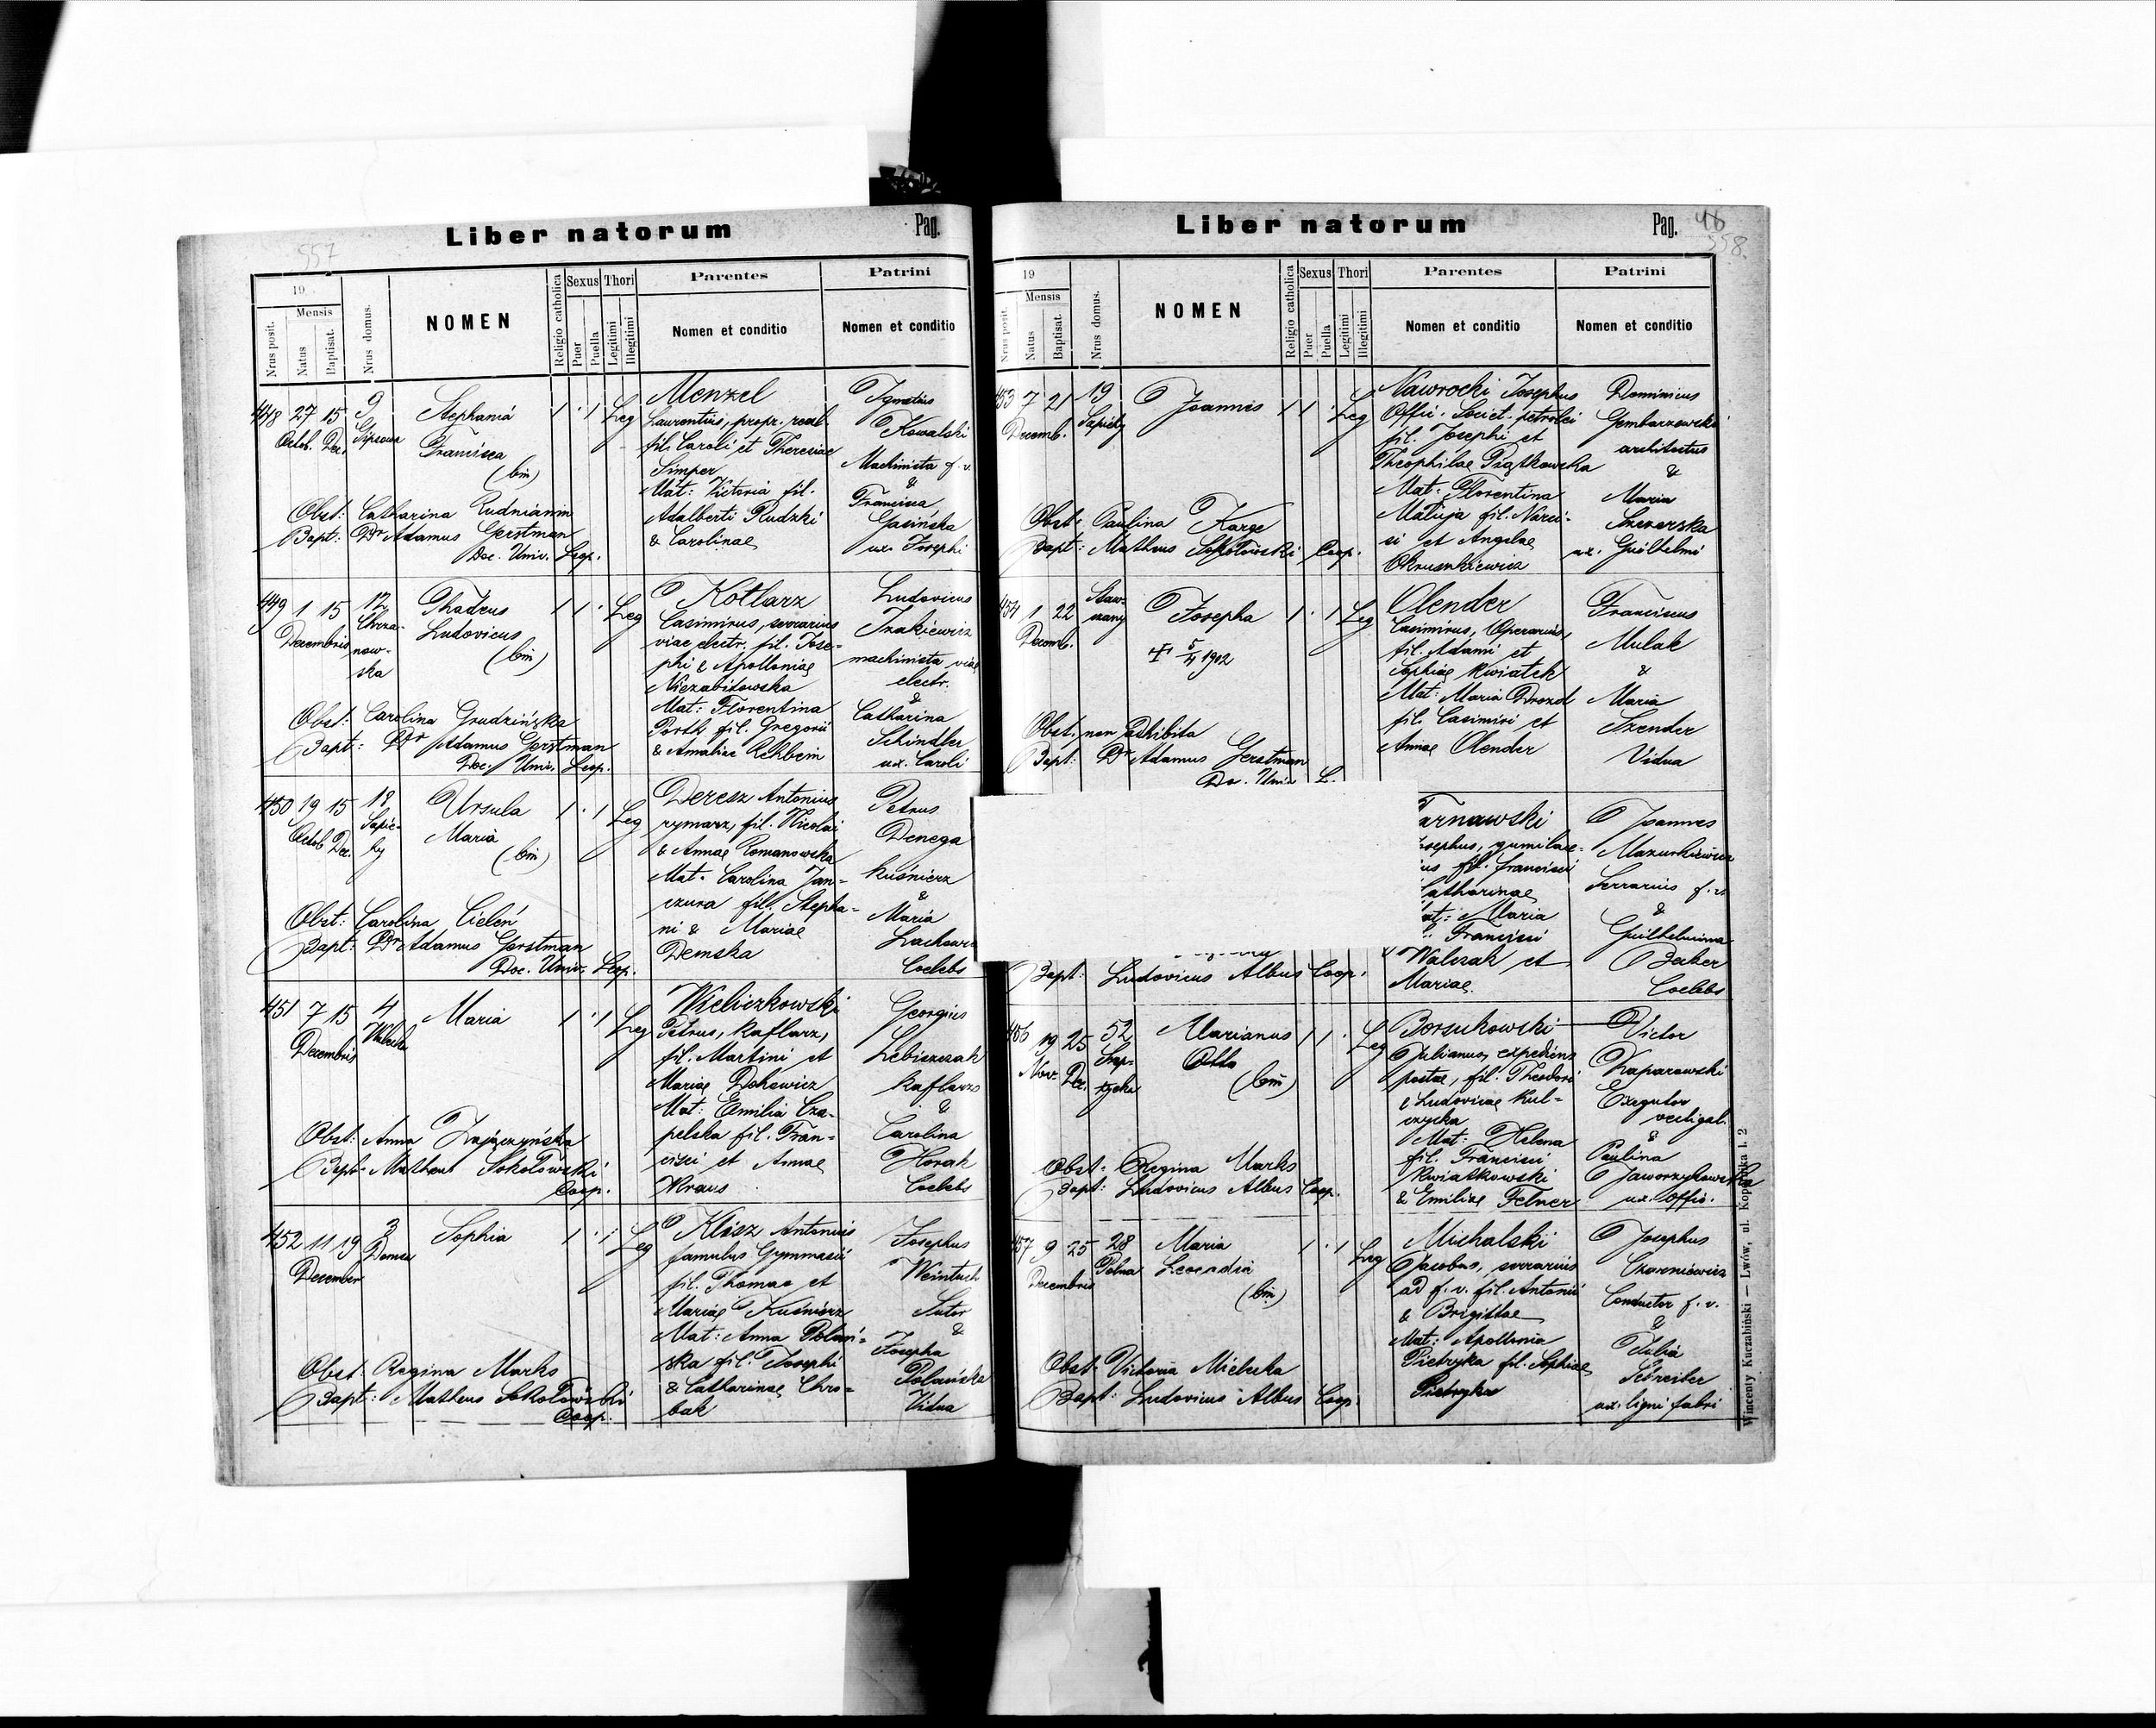 557
Liber natorum
Pag.
19
Mensis
Nrus posit.
Natus
Baptisat.
Nrus domus.
NOMEN
Religio catholica
Sexus
Puer
Puella
Thori
Legitimi
Illegitimi
Parentes
Nomen et conditio
Patrini
Nomen et conditio
448 27 15 9
Octob. Dec. Gipsowa
Stephania
Francisca
(bin)
1 · 1 Leg
Menzel
Laurentius, propr. real.
fil. Caroli et Theresiae
Simper
Mat: Victoria fil.
Adalberti Rudzki
& Carolinae
Ignatius
Kowalski
Machinista f. v.
&
Francisca
Gasińska
ux. Josephi
Obst: Catharina
Bapt: Dr Adamus Gerstman
Doc. Univ. Leop.
449 1 15 12
Decembris Chrza-
now-
ska
Thadeus
Ludovicus
(bin)
1 1 · Leg
Kotlarz
Casimirus, serrarius
viae electr. fil. Jose-
phi & Apolloniae
Niezabitowska
Mat: Florentina
Porth fil. Gregorii
& Amaliae Rehbein
Ludovicus
Izakiewicz
machinista viae
electr.
&
Catharina
Schindler
ux. Caroli
Obst: Carolina Grudzińska
Bapt: Dr Adamus Gerstman
Doc. Univ. Leop.
450 19 15 18
Octob Dec. Sapie-
hy
Ursula
Maria
(bin)
1 · 1 Leg
Deresz Antonius
rymarz, fil. Nicolai
& Annae Romanowska
Mat. Carolina Jan-
czura fil. Stepha-
ni & Mariae
Demska
Petrus
Denega
kuśnierz
&
Maria
Coelebs
Obst: Carolina Cieleń
Bapt: Dr Adamus Gerstman
Doc. Univ. Leop.
451 7 15 4
Decembris
Maria
1 · 1 Leg
Wieliczkowski
Petrus, kaflarz,
fil. Martini et
Mariae Dohowicz
Mat: Emilia Cza-
pelska fil. Fran-
cisci et Annae
Kraus
Georgius
Lebiszczak
kaflarz
&
Carolina
Horak
Coelebs
Obst: Anna Zajączyńska
Bapt: Matheus Sokołowski
Coop.
452 11 19 3
December
Sophia
1 · 1 Leg
Kłósz Antonius
famulus Gymnasii
fil. Thomae et
Mariae Kuśnierz
Mat: Anna Polań-
ska fil. Josephi
& Catharinae Chro-
bak
Josephus
Weintuch
Sutor
&
Josepha
Polańska
Vidua
Obst: Regina Marks
Bapt: Matheus Sokołowski
Coop.
Liber natorum
Pag. 46
558.
19
Mensis
Nrus posit.
Natus
Baptisat.
Nrus domus.
NOMEN
Religio catholica
Sexus
Puer
Puella
Thori
Legitimi
Illegitimi
Parentes
Nomen et conditio
Patrini
Nomen et conditio
453 7 21 19
Decemb. Sapiehy
Joannis
1 1 · Leg
Nawrocki Josephus
Offic. Societ. petrolei
fil. Josephi et
Theophilae Piątkowska
Mat: Florentina
Matuja fil. Narci-
si et Angelae
Okruszkiewicz
Dominicus
Gembarzewski
architectus
&
Maria
Szewerska
ux. Guilhelmi
Obst. Paulina Karge
Bapt: Matheus Sokołowski Coop.
454 1 22
Decemb.
Josepha
1 · 1 Leg
5/4 1902
Olender
Casimirus, Operarius,
fil. Adami et
Sophiae Kwiatek
Mat: Maria Drozd
fil. Casimiri et
Annae Olender
Franciscus
Mulak
&
Maria
Szender
Vidua
Obst. non adhibita
Bapt: Dr Adamus Gerstman
arnawski
osephus, gumilace-
us fil. Francisci
Catharinae
at: Maria
Francisci
Walczak et
Mariae
Joannes
Mazurkiewicz
Serrarius f. v.
&
Guilhelmina
Beker
Coelebs
Bapt: Ludovicus Albus Coop.
456 19 25 52
Nov. Dec.
Marianus
Otto
(bin)
1 1 · Leg
Borsukowski
Julianus, expediens
postae, fil. Theodori
& Ludovicae Kul-
czycka
Mat: Helena
fil. Francisci
Kwiatkowski
& Emiliae Felner
Victor
Kaparowski
Exequtor
vectigal.
&
Paulina
Jaworzykowska
ux. offic.
Obst: Regina Marks
Bapt: Ludovicus Albus Coop.
457 9 25 28
Decembris Polna
Maria
Leocadia
(bin)
1 · 1 Leg
Michalski
Jacobus, serrarius
ad f. v. fil. Antonii
& Brigittae
Mat: Apollonia
Pietryka fil. Sophiae
Pietryka
Josephus
Czerniewicz
Conductor f. v.
&
Julia
Schreiber
ux. ligni fabri
Obst. Victoria Mielecka
Bapt: Ludovicus Albus Coop.
Wincenty Kuczabiński — Lwów, ul. Kopernika l. 2